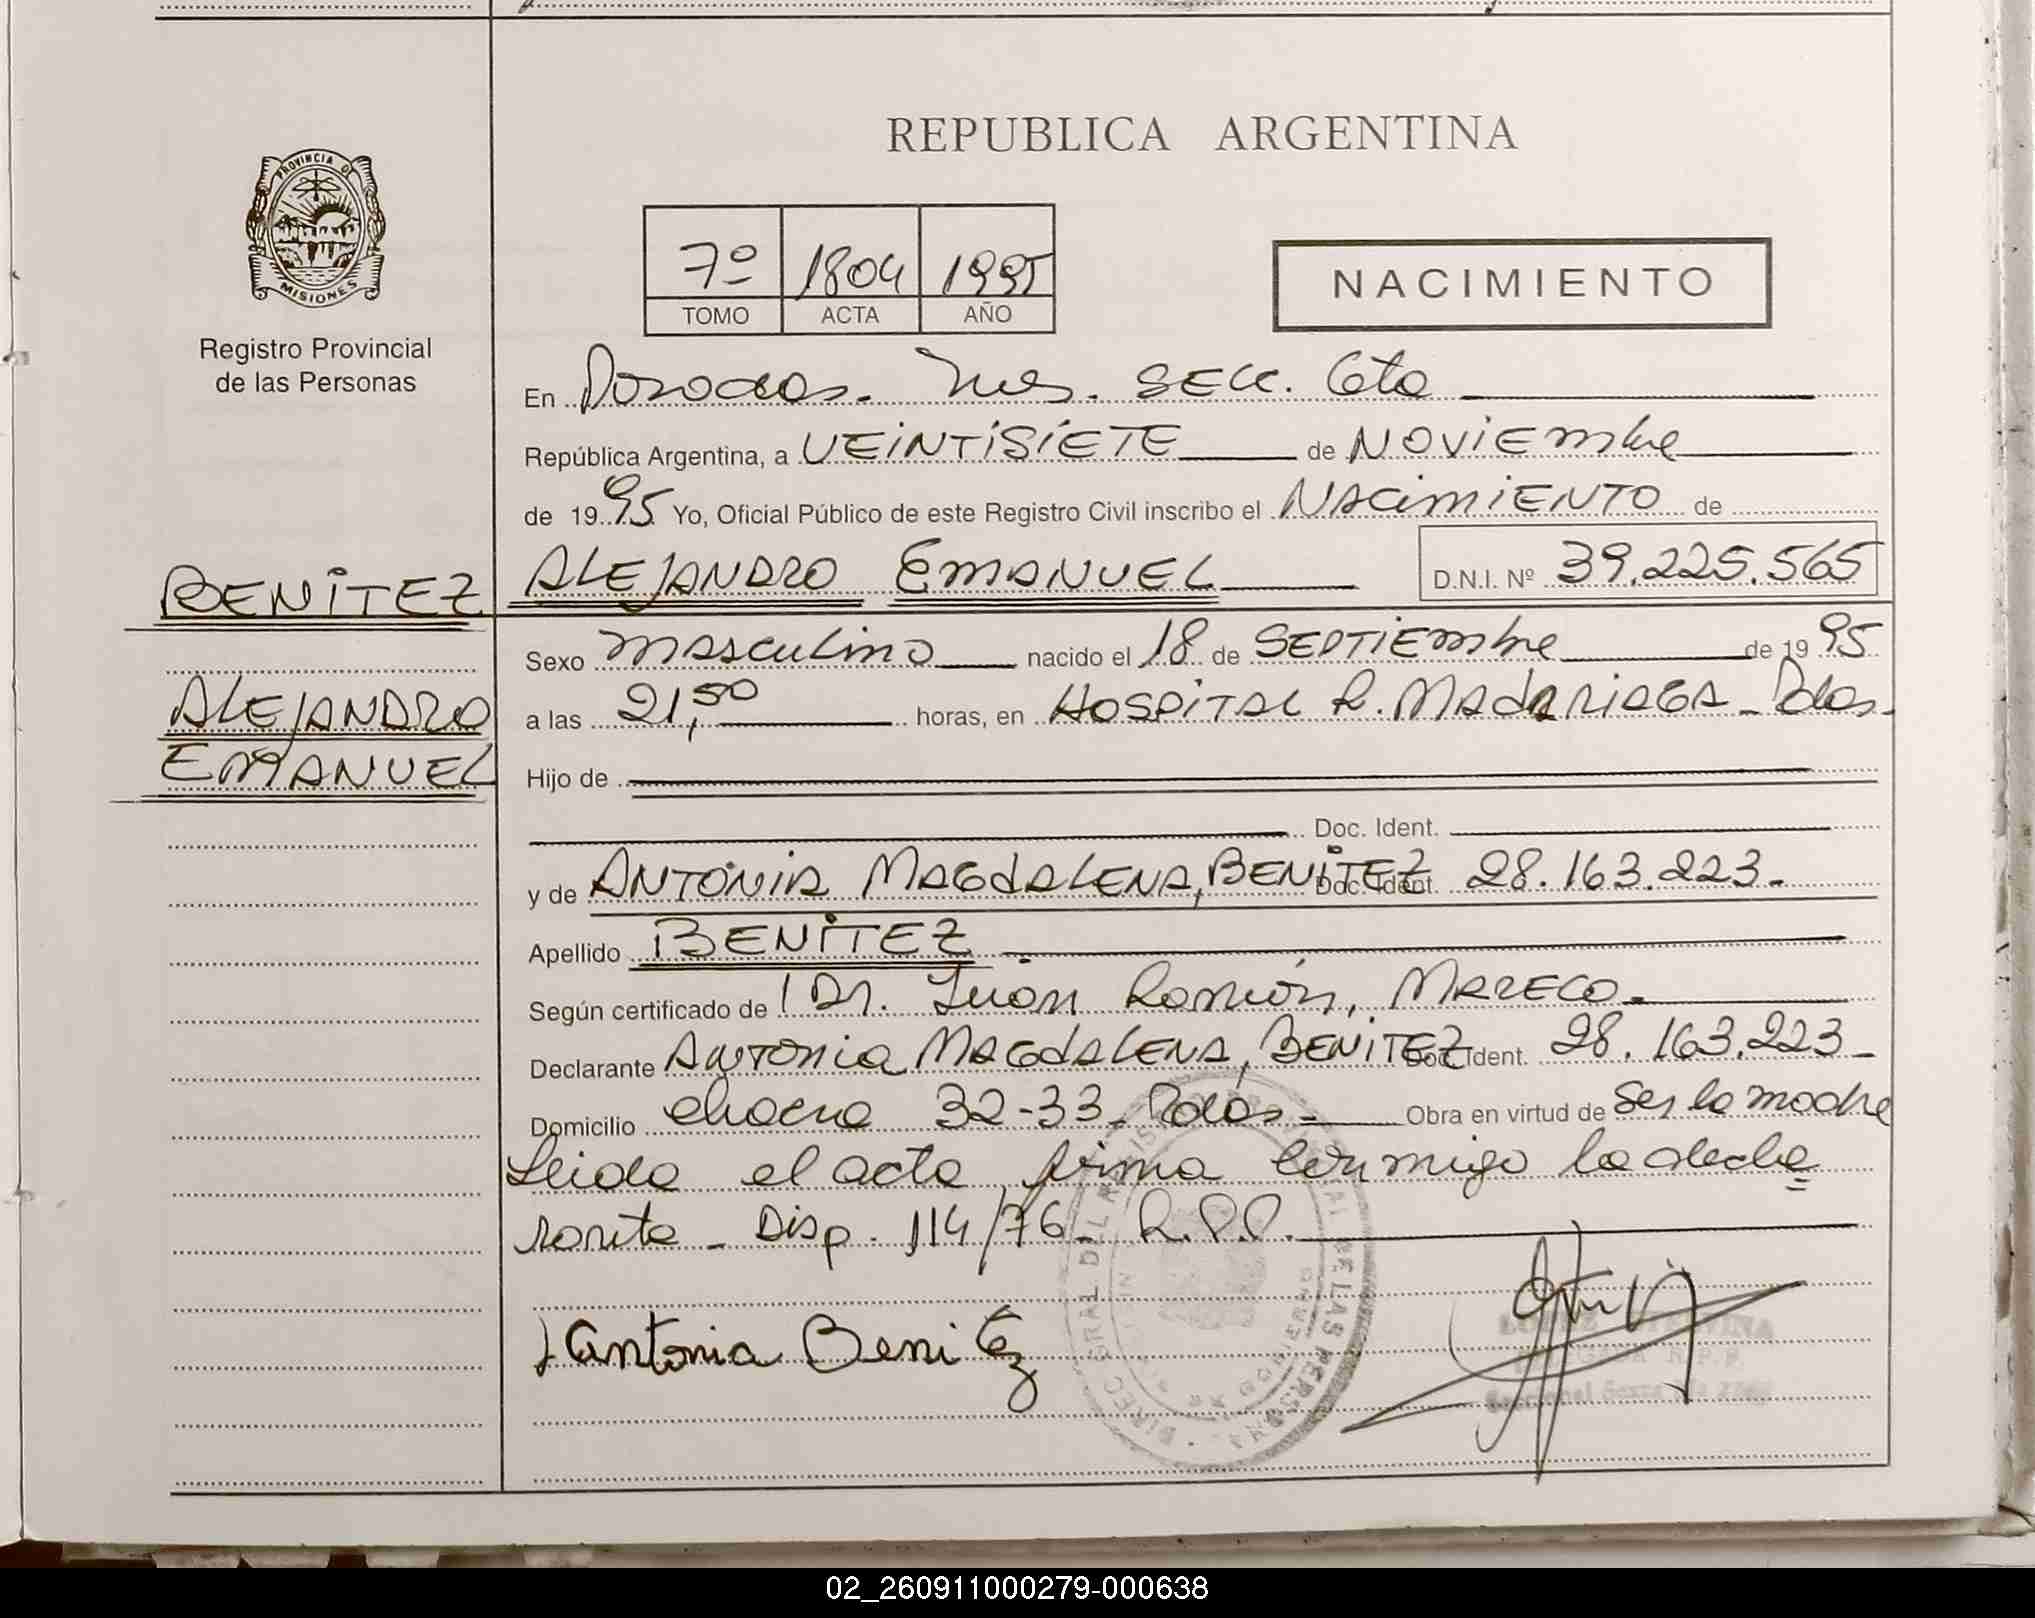 REPUBLICA ARGENTINA
PROVINCIA DE
MISIONES
Registro Provincial
de las Personas
7º 1804 1995
TOMO ACTA AÑO
NACIMIENTO
En Posadas. Mnes. SECC. 6ta
República Argentina, a VEINTISIETE de NOVIEmbre
de 1995 Yo, Oficial Público de este Registro Civil inscribo el NAcimIENTO de
BENITEZ
ALEJANDRO EMANUEL
D.N.I. Nº 39.225.565
Sexo mAsculino nacido el 18 de SEPTIEmbre de 1995
ALEJANDRO
EMANUEL
a las 21,50 horas, en HOSPITAL R. MAdARIAGA - Pdas.
Hijo de
Doc. Ident.
y de ANTONIA MAGdALENA, BENITEZ Doc. Ident. 28.163.223.
Apellido BENITEZ
Según certificado de Dr. Juan Ramón, MARECO.
Declarante ANTONIA MAGdALENA, BENITEZ Doc. Ident. 28.163.223
Domicilio chacra 32-33 Pdas - Obra en virtud de Ser la madre
Leida el acta firma conmigo la decla=
rante - Disp. 114/76 - R.P.P.
Antonia Benitez
DIREC GRAL DEL REGISTRO PROVINCIAL DE LAS PERSONAS
02_260911000279-000638